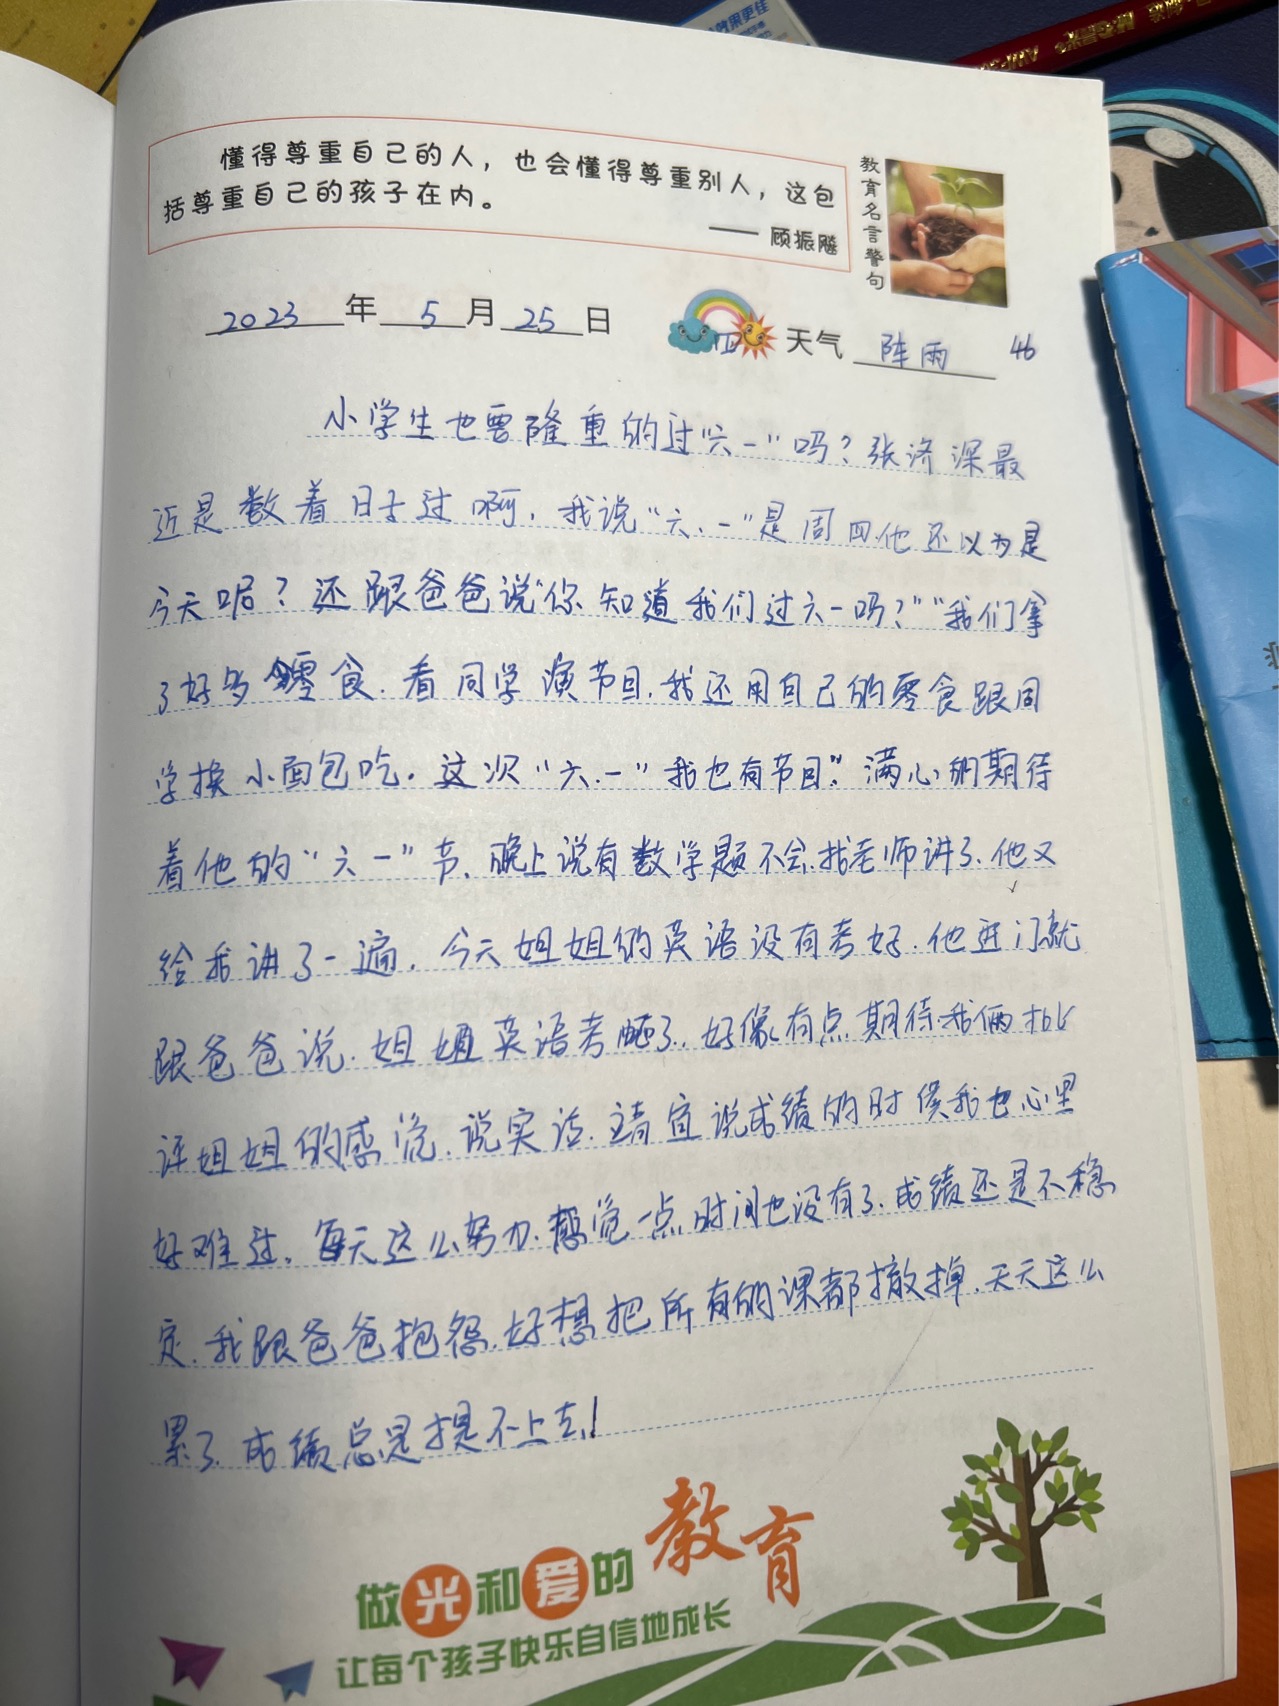 效果更佳
懂得尊重自己的人，也会懂得尊重别人，这包
括尊重自己的孩子在内。
—— 顾振飚
教育名言警句
2023年5月25日
天气 阵雨 46
小学生也要隆重的过“六一”吗？张济深最
近是数着日子过啊，我说“六.一”是周四他还以为是
今天呢？还跟爸爸说“你知道我们过六一吗？”“我们拿
了好多零食.看同学演节目，我还用自己的零食跟同
学换小面包吃.这次“六.一”我也有节目.”满心期待
着他的“六一”节.晚上说有数学题不会.找老师讲了.他又
给我讲了一遍.今天姐姐的英语没有考好.他进门就
跟爸爸说.姐姐英语考砸了.好像有点期待我俩批
评姐姐的感觉.说实话.说成绩的时候我也心里
好难过.每天这么努力.感觉一点时间也没有了.成绩还是不稳
定.我跟爸爸抱怨.好想把所有的课都撤掉.天天这么
累了.成绩总是提不上去！
做光和爱的教育
让每个孩子快乐自信地成长